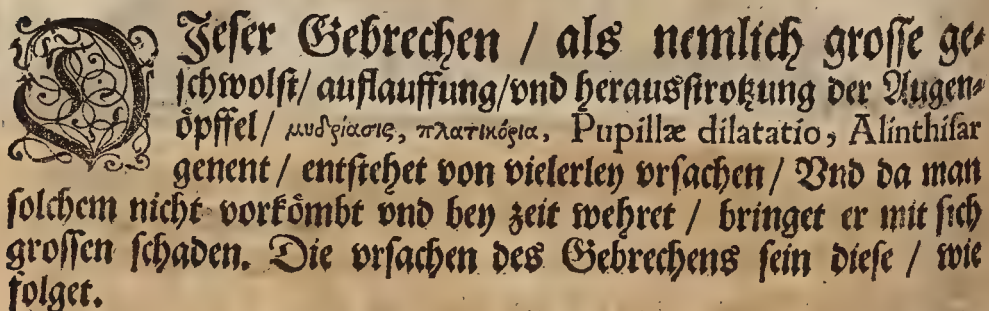 DJeser Gebrechen / als nemlich grosse ge⸗
schwolst / auflauffung / vnd herausstrotzung der Augen⸗
oͤpffel / μυδρίασις, πλατικόρια, Pupillæ dilatatio, Alinthisar
genent / entstehet von vielerley vrsachen / Vnd da man
solchem nicht vorkoͤmbt vnd bey zeit wehret / bringet er mit sich
grossen schaden. Die vrsachen des Gebrechens sein diese / wie
folget.